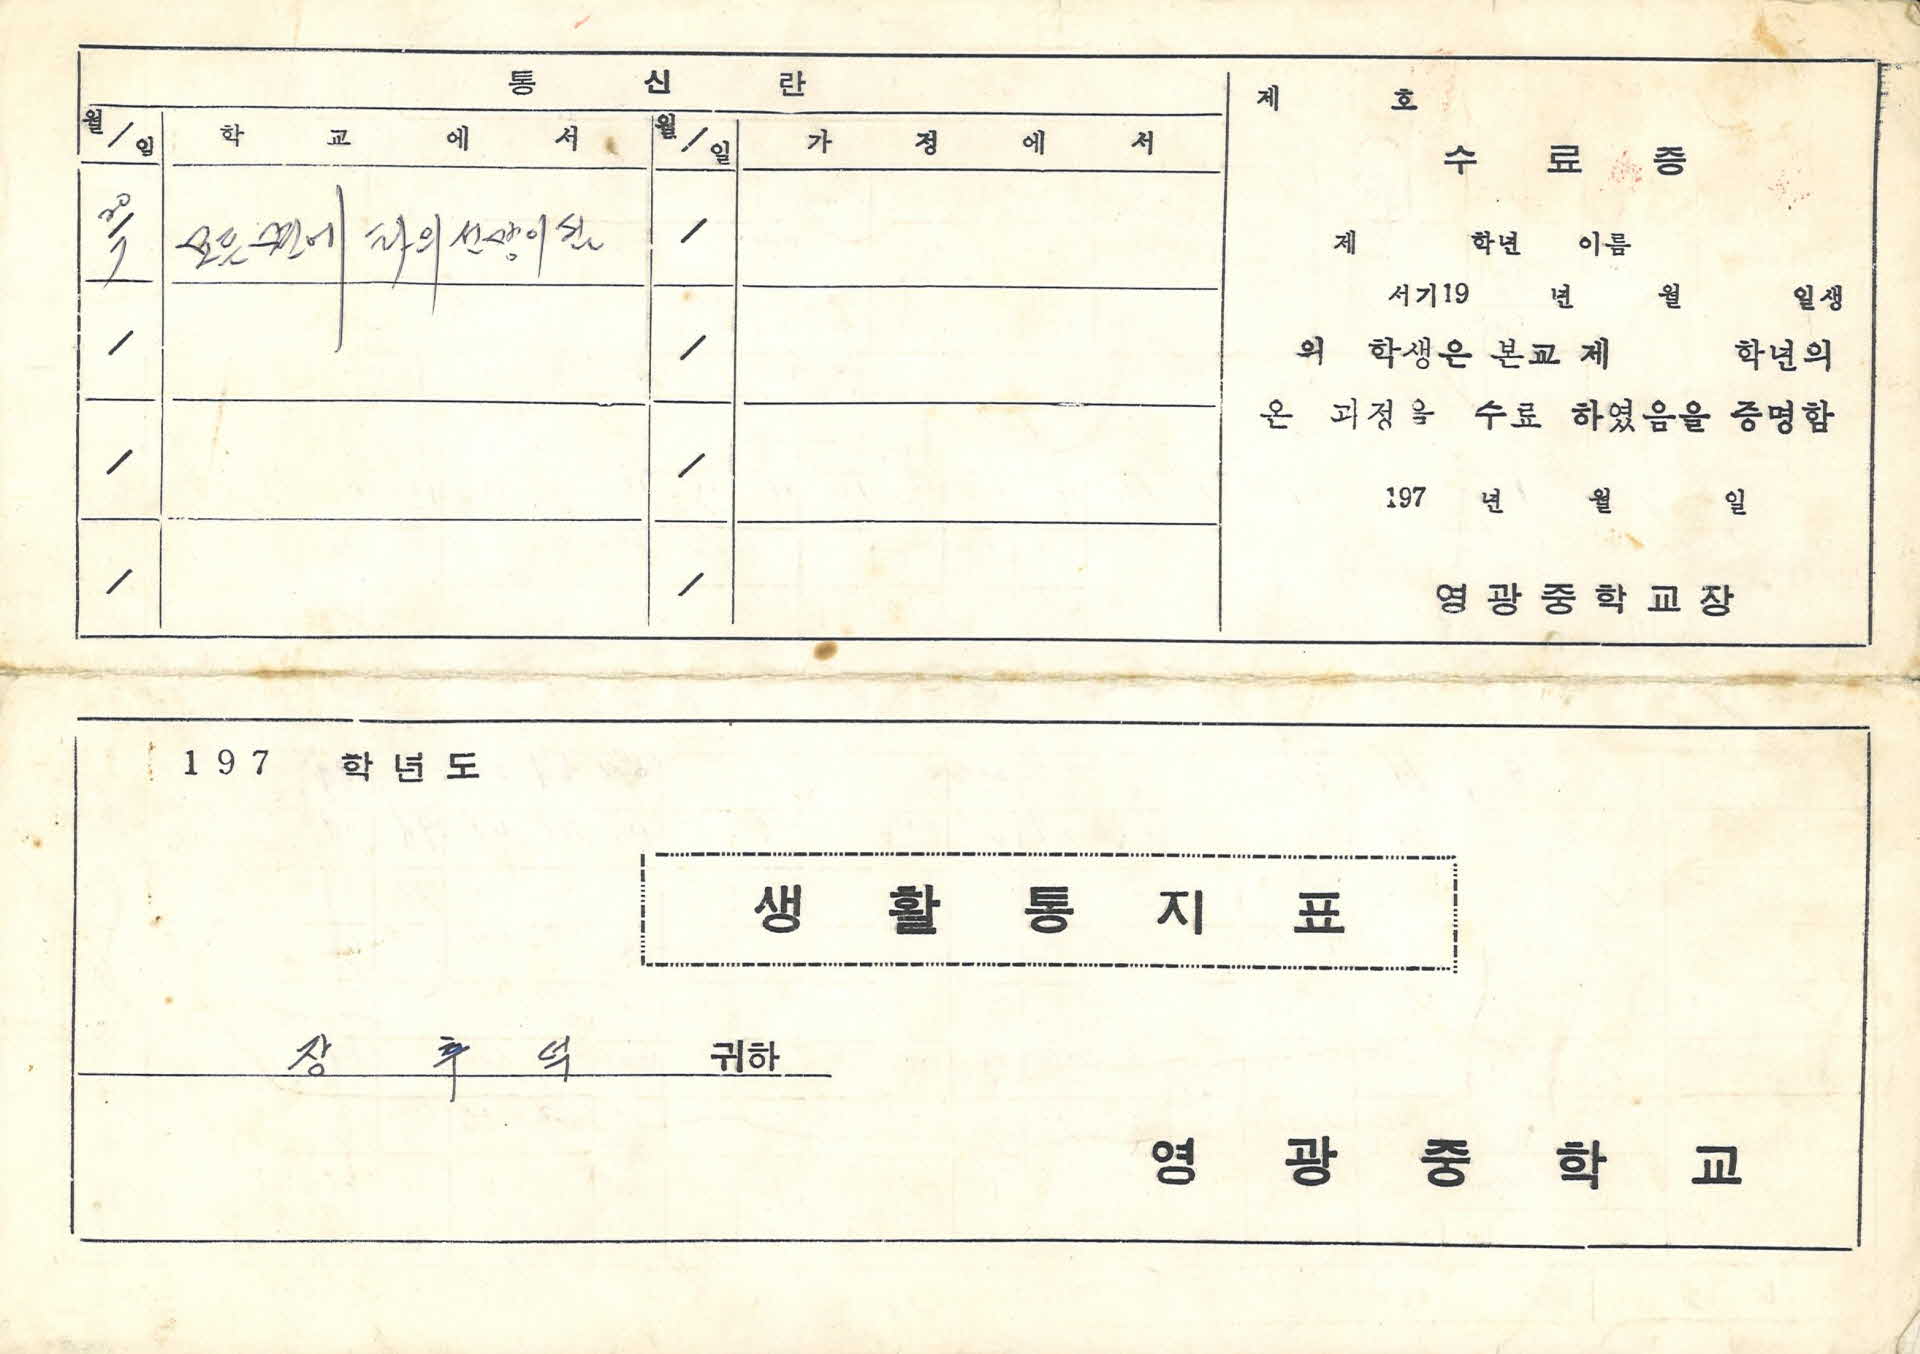 통 신 란
월/일 학 교 에 서 월/일 가 정 에 서
모든 면에 타의 선생이 된
제 호
수 료 증
제 학년 이름
서기19 년 월 일생
의 학생은 본교 제 학년의
온 과정을 수료 하였음을 증명함
197 년 월 일
영광중학교장
197 학년도
생 활 통 지 표
장 후 덕 귀하
영 광 중 학 교